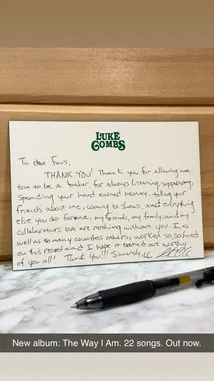 LUKE
COMBS
To the Fans,
THANK YOU! Thank you for allowing
me to be a for always listening, supporting,
Spending your hard earned money, telling your
friends about me, coming to shows, and everything
else you do for me, my friends, my family, and my
collaborators. We are nothing without you. I, as
well as so many countless others, worked so so hard
on this record and I hope it turned out worthy
of you all! Thank You!!! Sincerely,
New album: The Way I Am. 22 songs. Out now.